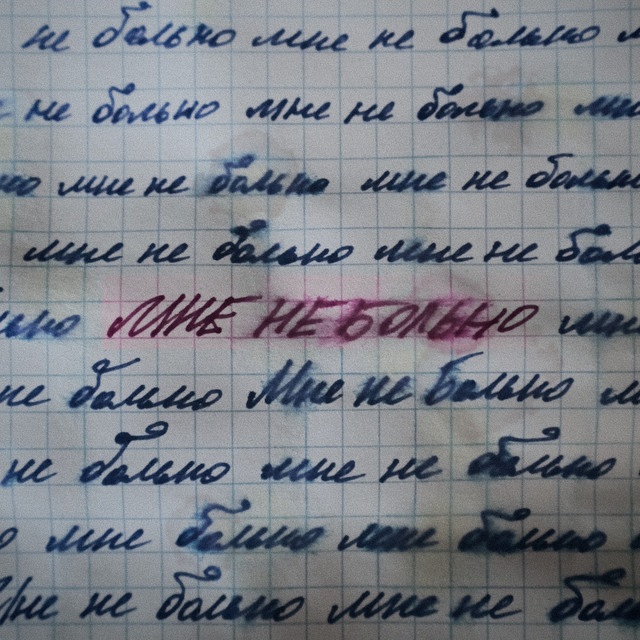 не больно мне не больно м
не больно мне не больно мне
но мне не больно мне не больно
мне не больно мне не боль
ьно МНЕ НЕ БОЛЬНО мне
не больно Мне не больно м
не больно мне не больно
о мне больно мне больно
Мне не больно мне не бол